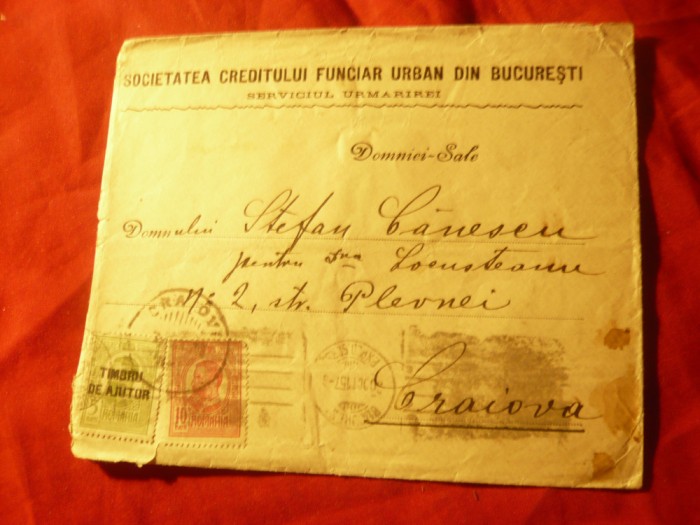 SOCIETATEA CREDITULUI FUNCIAR URBAN DIN BUCUREȘTI
SERVICIUL URMARIREI
Domniei-Sale
Domnului Ștefan Cănescu
pentru Dna Locusteanu
No 2, str. Plevnei
CRAIOVA
TIMBRU
DE AJUTOR
5
10
Craiova